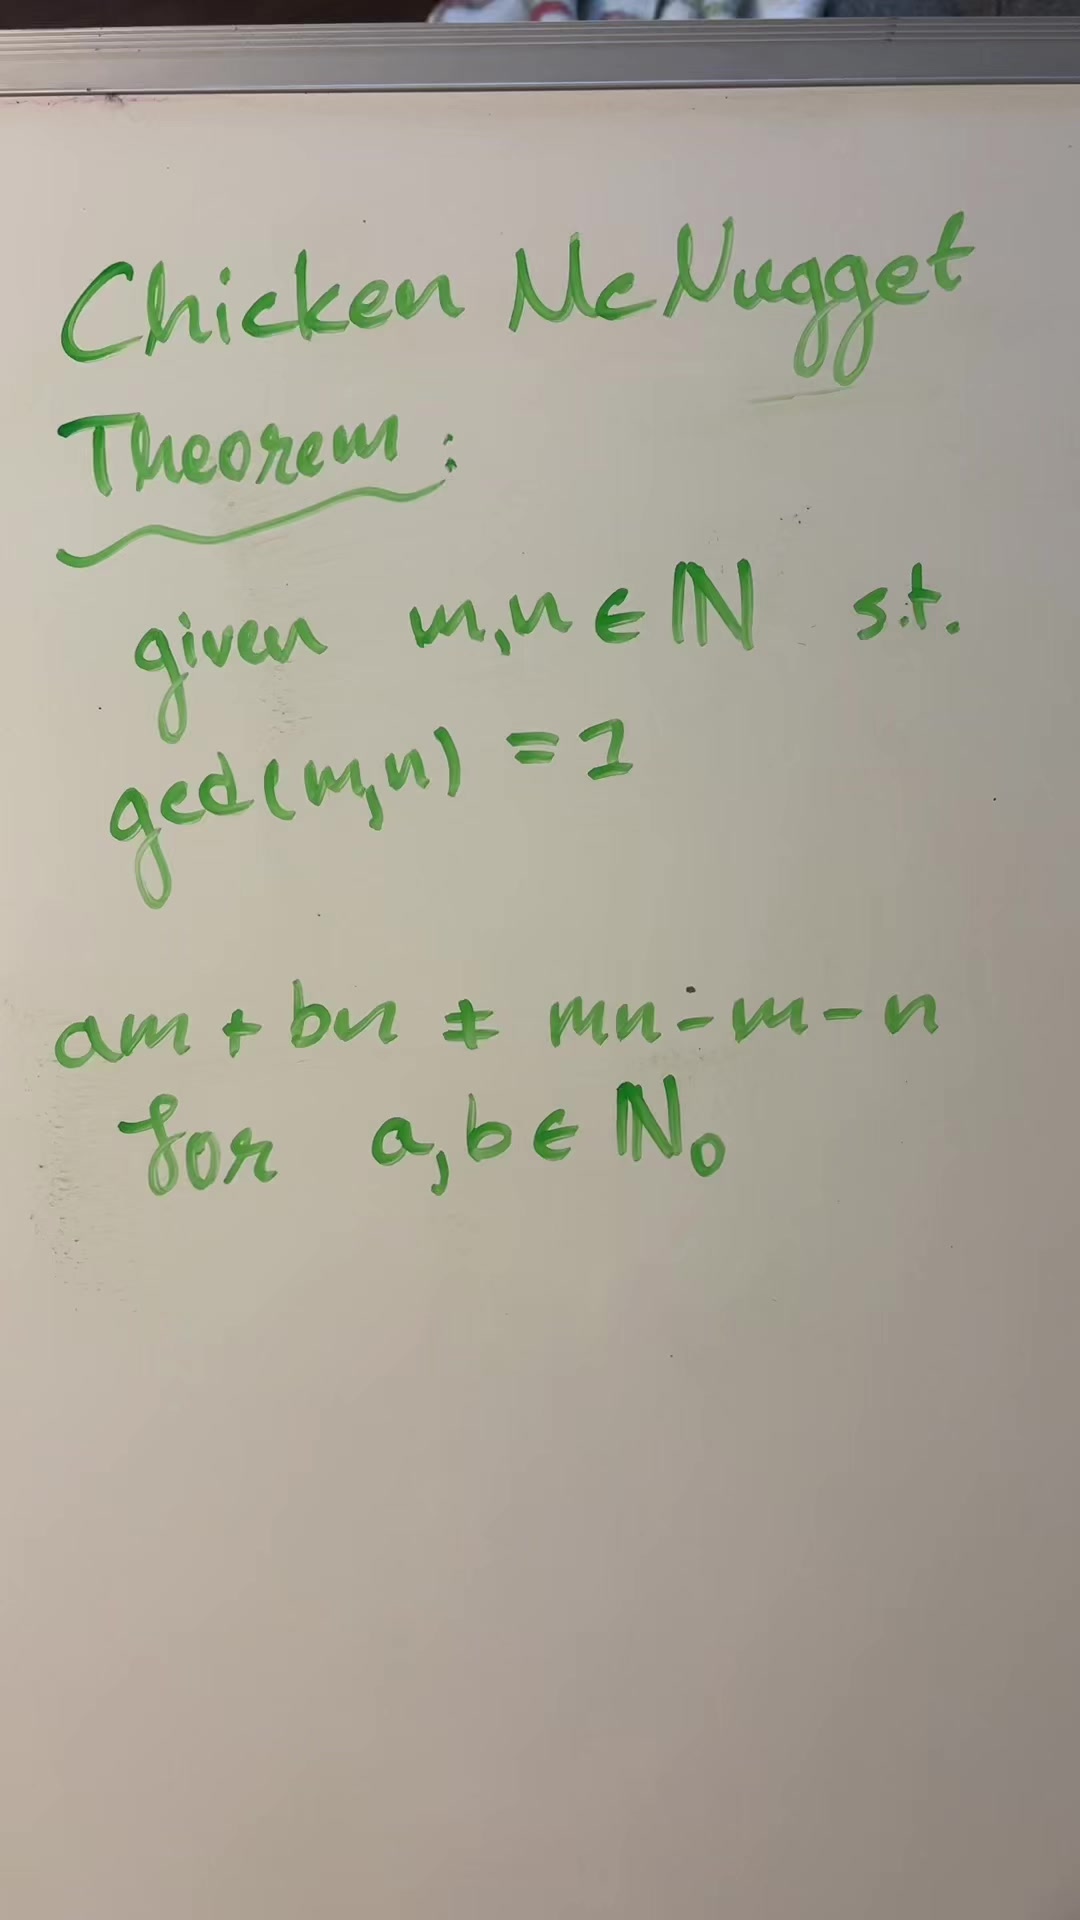 Chicken McNugget
Theorem:
given m,n ∈ ℕ s.t.
gcd(m,n) = 1
am + bn ≠ mn - m - n
for a,b ∈ ℕ₀